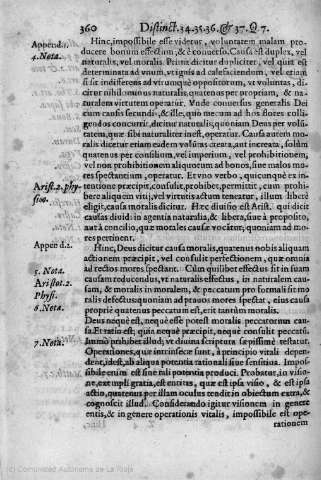 360 Distinct. 34. 35. 36. & 37. Q. 7.
Append. 1.
Hinc, impossibile esse videtur, voluntatem malam pro-
ducere bonum effectum, & è converso. Causa est duplex, vel
4. Nota.
naturalis, vel moralis. Prima dicitur dupliciter, vel quia est
determinata ad vnum, vt ignis ad calefaciendum, vel etiam
si sit indifferens ad vtrumque oppositorum, vt voluntas, di-
citur nihilominus naturalis, quatenus per propriam, & na-
turalem virtutem operatur. Vnde conuersus generalis Dei
cum causis secundis, & ille, quo mecum ad hos flores colli-
gendos concurrit, dicitur naturalis, quoniam Deus per volu-
tatem, quæ sibi naturaliter inest, operatur. Causa autem mo-
ralis dicetur etiam eadem volutas creata, aut increata, solùm
quatenus per consilium, vel imperium, vel prohibitionem,
vel non prohibitionem aliquorum ad bonos, siue malos mo-
res spectantium, operatur. Et vno verbo, quicunque ex in-
Arist. 2. phy-
sico.
tentione præcipit, consulit, prohibet, permittit, cum prohi-
bere aliquomodo viti, vel virtutis actum teneatur, illum liberè
eligit, causa moralis dicitur. Hæc diuisio est Arist. qui dicit
causas diuidi in agentia naturalia, & libera, siue à proposito,
aut à concilio, quæ morales causæ vocãtur, quoniam ad mo-
res pertinent.
Append. 2.
Hinc, Deus dicitur causa moralis, quatenus nobis aliquam
actionem præcipit, vel consulit perfectionem, quæ omnia
5. Nota.
ad rectos mores spectant. Cum quilibet effectus sit in suam
Aristot. 2.
Physi.
causam reducendus, vt naturalis effectus, in naturalem cau-
sam, & moralis in moralem, & peccatum pro formali sit mo-
ralis defectus quoniam ad prauos mores spectat, eius causa
6. Nota.
propriè quatenus peccatum est, erit tantùm moralis.
Deus neque est, neque esse potest moralis peccatorum cau-
sa. Et ratio est; quia neque præcipit, neque consulit peccata.
7. Nota.
Immo prohibet illud, vt diuina scriptura sæpissimè testatur.
Operationes, quæ intrinsecè sunt, à principio vitali depen-
dent, idest, ab aliqua potentia rationali siue sensitiua. Impos-
sibile enim est sine tali potentia produci. Probatur, in visio-
ne, exempli gratia, est entitas, quæ est ipsa visio, & est ipsa
actio, quatenus per illam oculus tendit in obiectum extra, &
cognoscit illud. Considerando igitur visionem in genere
entis, & in genere operationis vitalis, impossibile est ope-
rationem
(c) Comunidad Autónoma de La Rioja